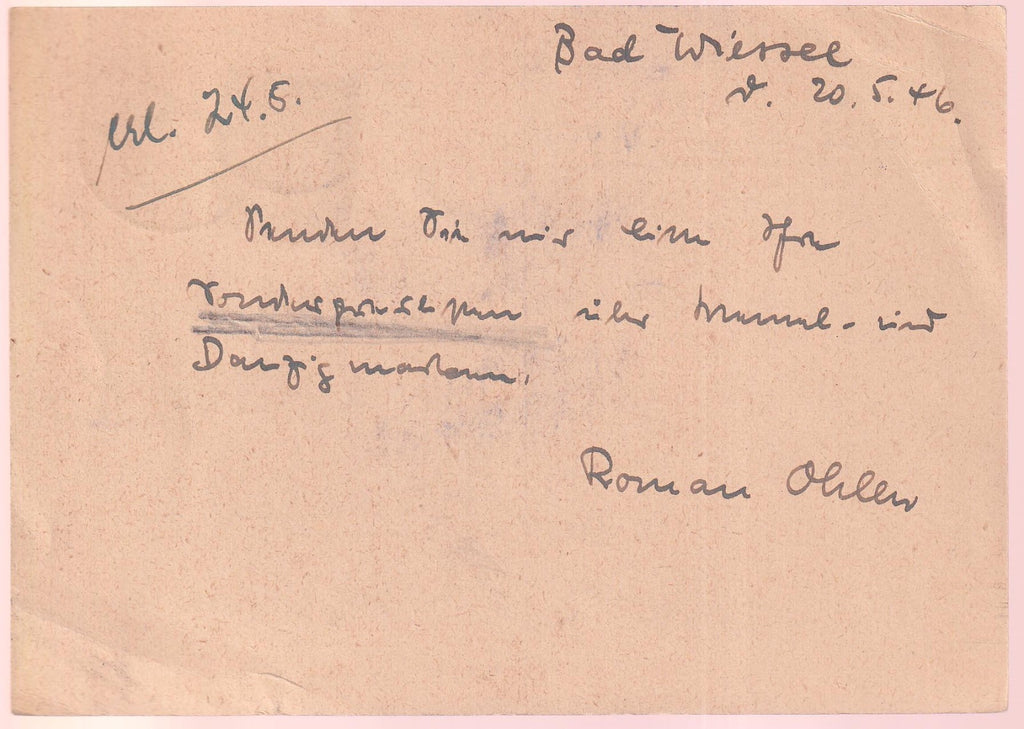 Bad Wiessee
d. 20.5.46.
erl. 24.5.
Senden Sie mir bitte Ihre
Sonderpreislisten über Memel- und
Danzigmarken.
Roman Ohler